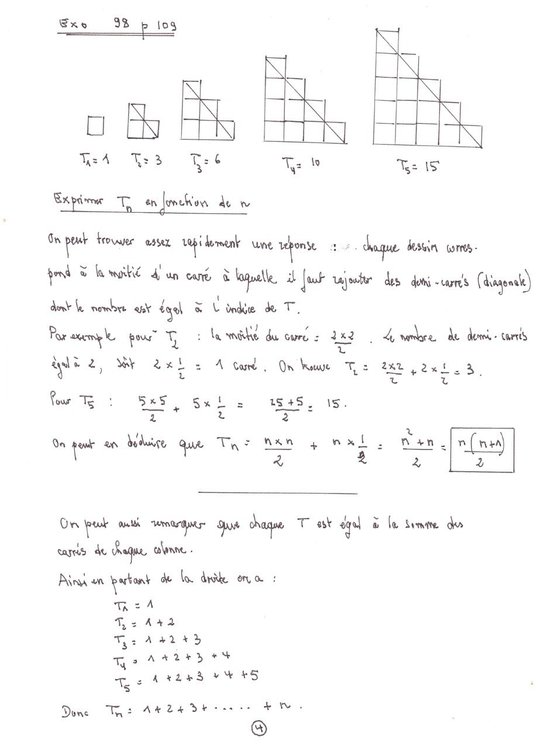 Exo 98 p 109
T1 = 1 T2 = 3 T3 = 6 T4 = 10 T5 = 15
Exprimer Tn en fonction de n
On peut trouver assez rapidement une reponse : .. chaque dessin corres-
pond à la moitié d'un carré à laquelle il faut rajouter des demi-carrés (diagonale)
dont le nombre est égal à l'indice de T.
Par exemple pour T2 : la moitié du carré = 2x2/2 . Le nombre de demi-carrés
égal à 2, soit 2 x 1/2 = 1 carré. On trouve T2 = 2x2/2 + 2 x 1/2 = 3.
Pour T5 : 5x5/2 + 5 x 1/2 = 25+5/2 = 15.
On peut en déduire que Tn = n x n/2 + n x 1/2 = n²+n/2 = n(n+1)/2
On peut aussi remarquer que chaque T est égal à la somme des
carrés de chaque colonne.
Ainsi en partant de la droite on a :
T1 = 1
T2 = 1 + 2
T3 = 1 + 2 + 3
T4 = 1 + 2 + 3 + 4
T5 = 1 + 2 + 3 + 4 + 5
Donc Tn = 1 + 2 + 3 + ..... + n .
4